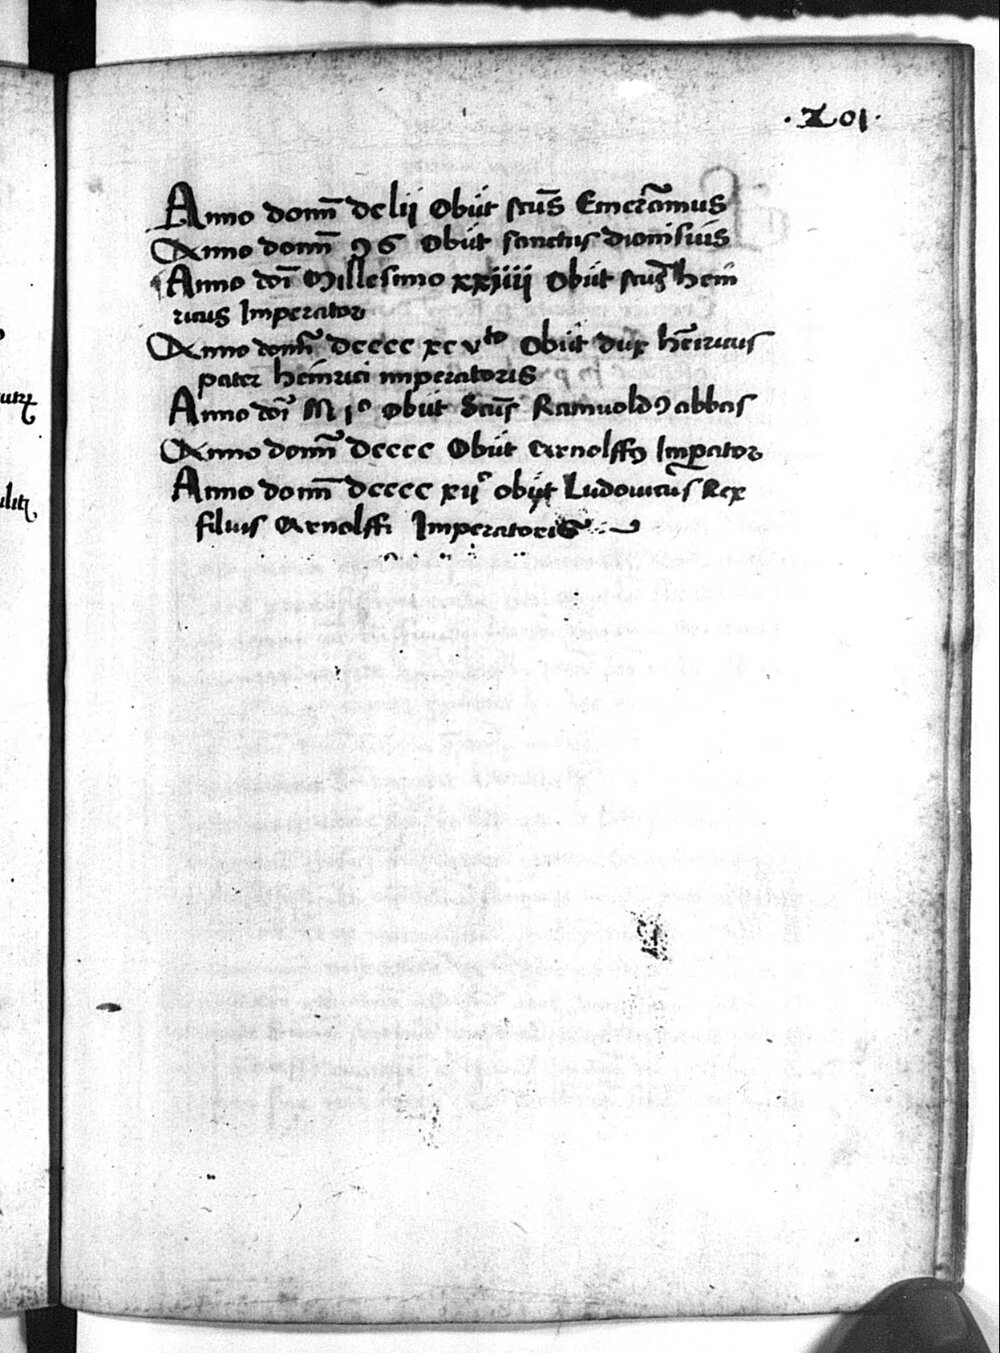 ·XVI·
Anno domī dclij Obijt sctūs Emeramus
Anno domī 96 Obijt sanctus dionisius
Anno dōi Millesimo xxiiij Obijt sctūs hein
ricus Imperator
Anno domī dcccc xcvto Obijt dux heīricus
pater heinrici imperatoris
Anno dōi M i° Obijt Sctūs Ramuoldꝰ abbas
Anno domī dcccc Obijt Arnolffꝰ Imperator
Anno domī dcccc xij° obijt Ludowicus Rex
filius Arnolffi Imperatoris